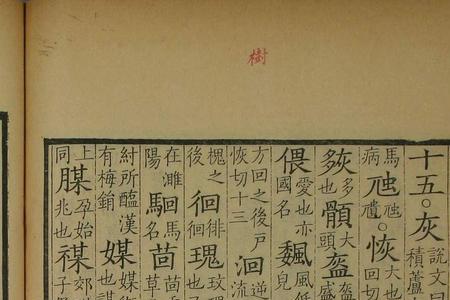 樹
十五○灰 說文曰 積蘆
馬病 ○恢 大也 回切
多也 顝 大頭 盔 盔 盛
偎 愛也亦 國名 風低 皃
方回之後戶 恢切十三 洄 逆 流
槐之 後 徊 徘 瑰 玫 也
在濰 陽 馬名 茴 茴 草
紂所醢漢 有梅鋗 媒 媒衒 也謀
上同 腜 孕始 兆也 禖 郊 子